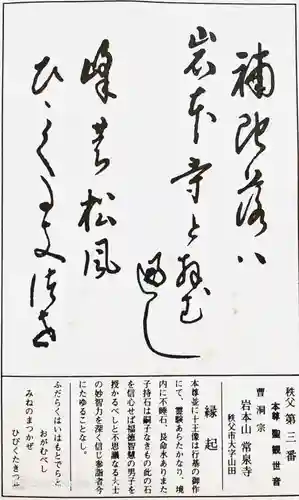 補陀落ハ
岩本寺と拝む
べし
峰の松風
ひゞくたきつせ
秩父第三番
本尊 聖観世音
曹洞宗
岩本山 常泉寺
秩父市大字山田
縁起
本尊並に十王像は行基の御作
にて、霊験あらたかなり、境
内に不睡石、長命水ありまた
子持石は嗣子なきもの此の石
を信心せば福徳智慧の男子を
授かるべしと不思議なる大士
の妙智力を深く信じ参詣者今
にたゆることなし。
ふだらくはいはもとでらと
おがむべし
みねのまつかぜ
ひびくたきつせ